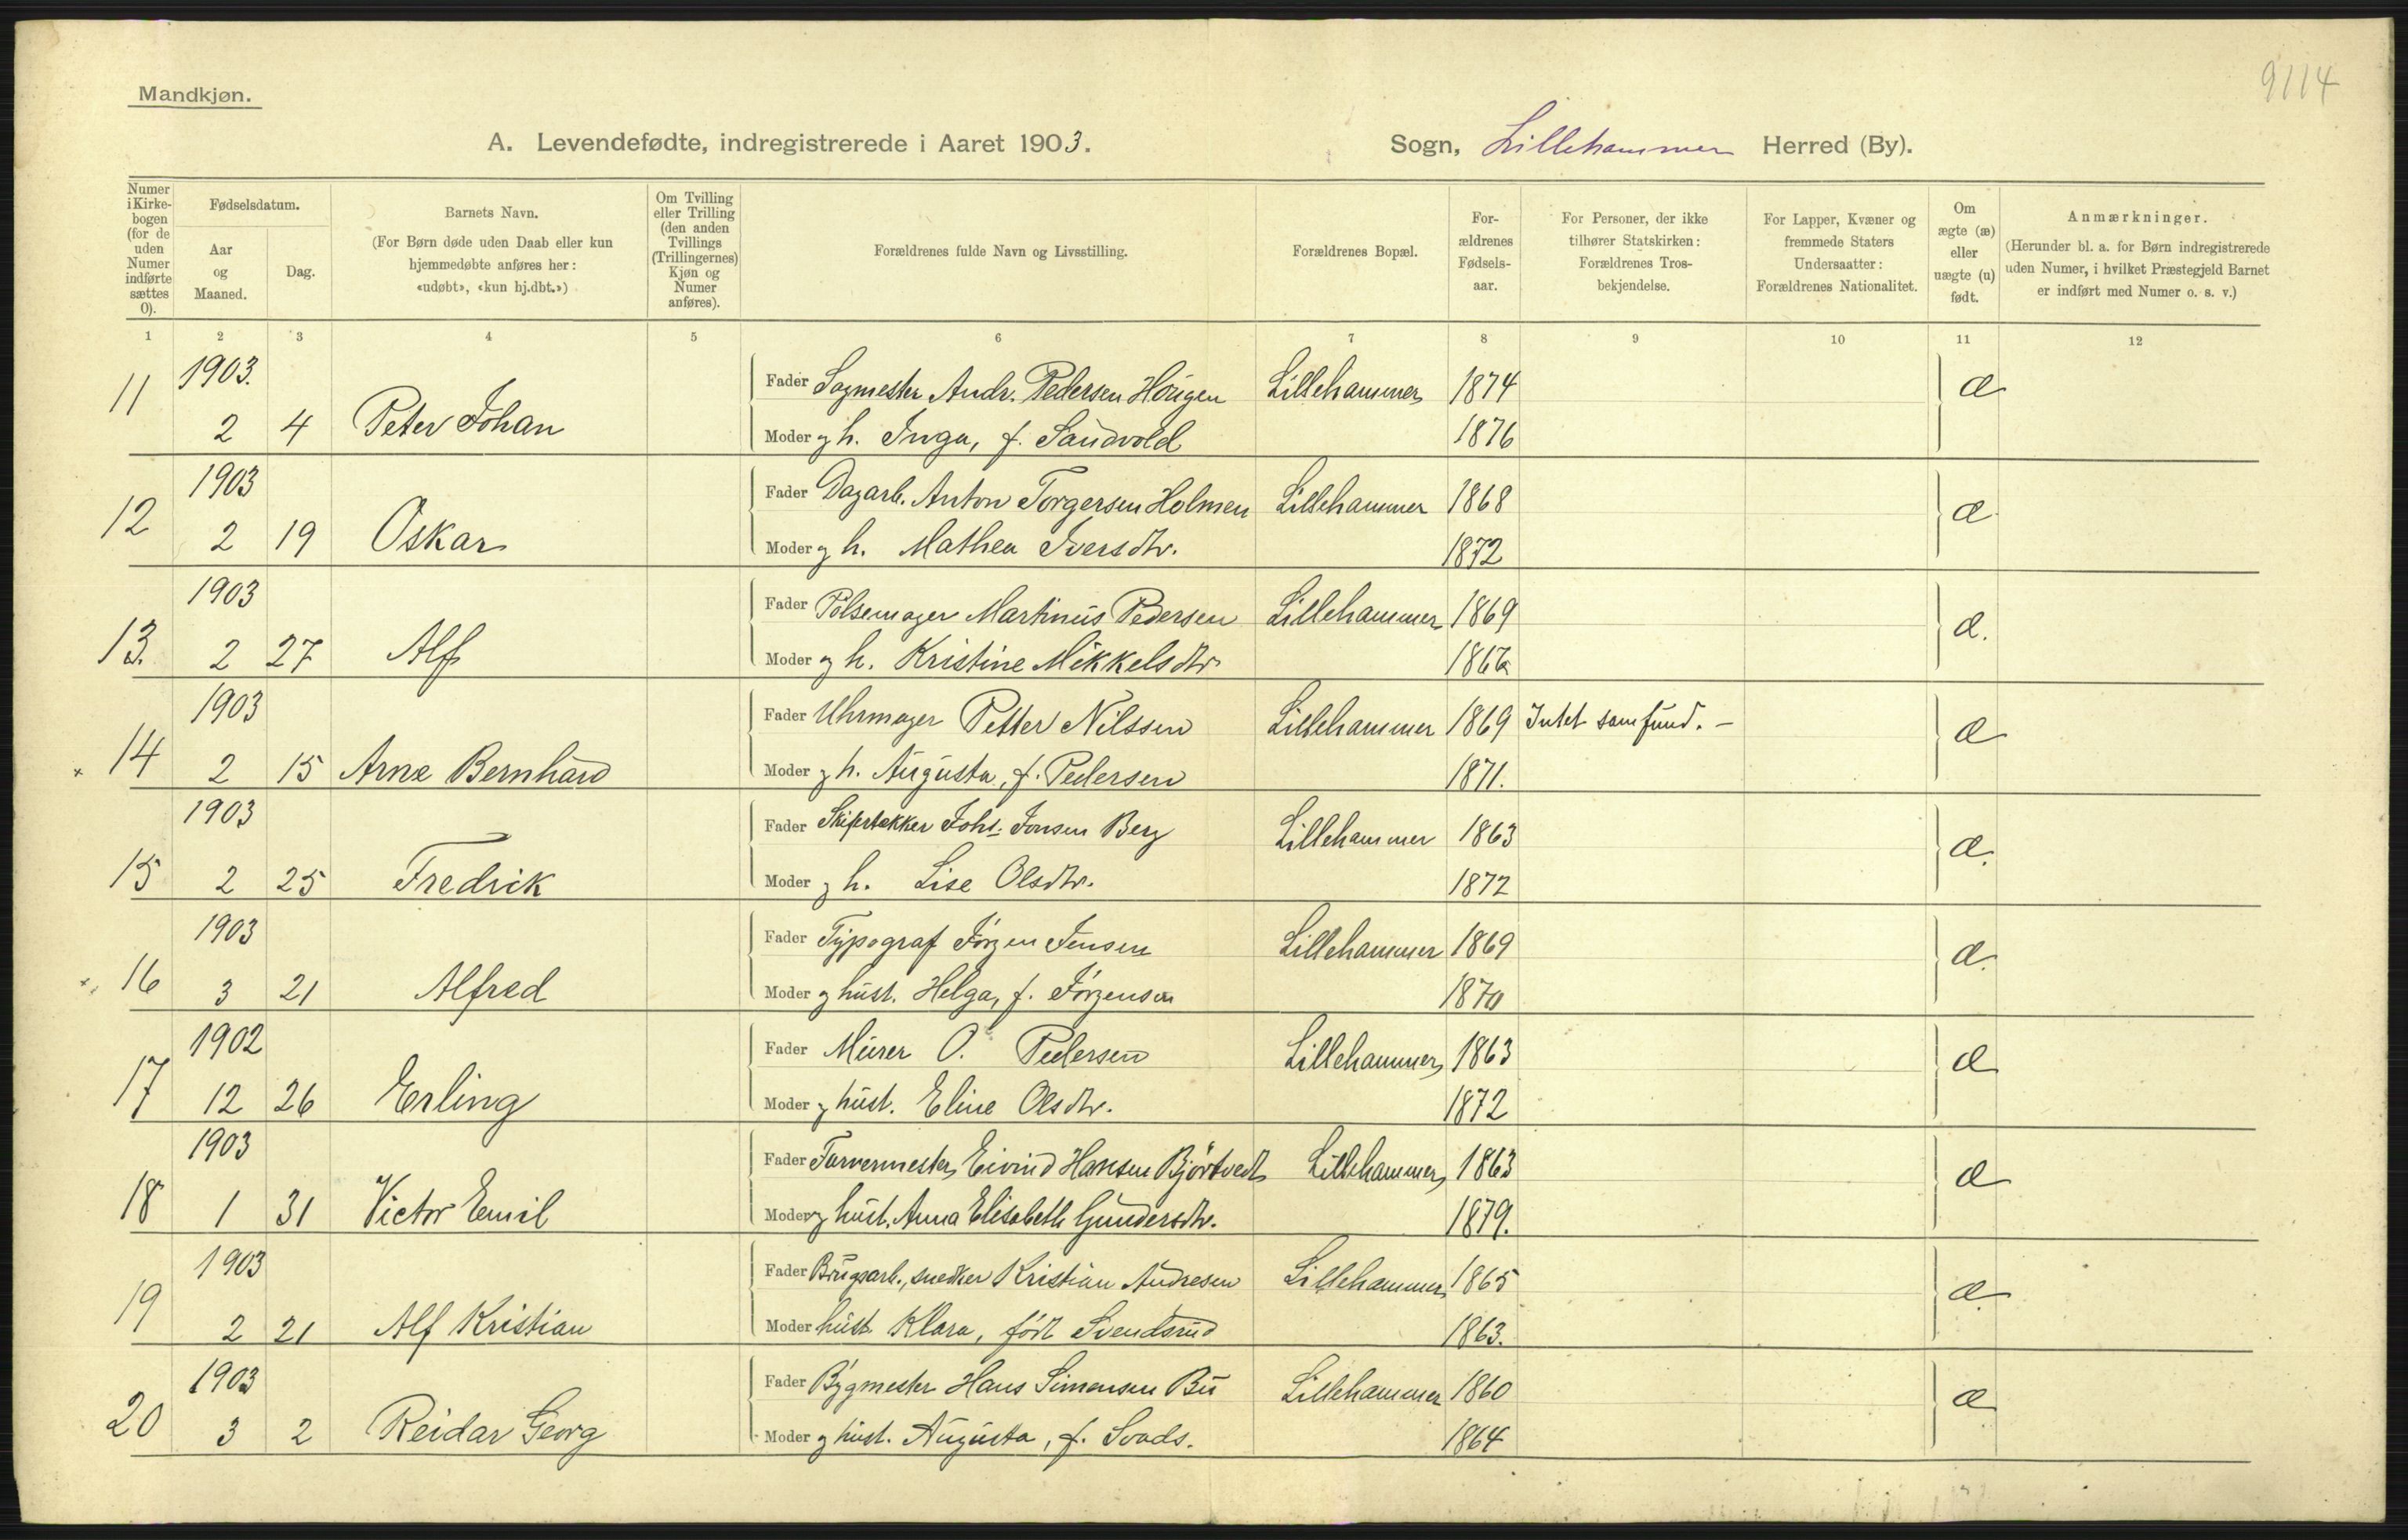 9114
Mandkjøn.
A. Levendefødte, indregistrerede i Aaret 1903. Sogn, Lillehammer Herred (By).
Numer i Kirkebogen (for de uden Numer indførte sættes 0).
Fødselsdatum.
Aar og Maaned.
Dag.
Barnets Navn.
(For Børn døde uden Daab eller kun hjemmedøbte anføres her: «udøbt», «kun hj.dbt.»)
Om Tvilling eller Trilling (den anden Tvillings (Trillingernes) Kjøn og Numer anføres).
Forældrenes fulde Navn og Livsstilling.
Forældrenes Bopæl.
Forældrenes Fødselsaar.
For Personer, der ikke tilhører Statskirken: Forældrenes Trosbekjendelse.
For Lapper, Kvæner og fremmede Staters Undersaatter: Forældrenes Nationalitet.
Om ægte (æ) eller uægte (u) født.
Anmærkninger.
(Herunder bl. a. for Børn indregistrerede uden Numer, i hvilket Præstegjeld Barnet er indført med Numer o. s. v.)
1 2 3 4 5 6 7 8 9 10 11 12
11 1903. Fader Sagmester Andr. Pedersen Hougen Lillehammer 1874 æ
2 4 Peter Johan Moder og h. Inga, f. Sandvold 1876
12 1903 Fader Dagarb. Anton Torgersen Holmen Lillehammer 1868 æ
2 19 Oskar Moder og h. Mathea Iversdtr. 1872
13. 1903 Fader Pølsemager Martinus Pedersen Lillehammer 1869 æ.
2 27 Alf Moder og h. Kristine Mikkelsdtr
14 1903 Fader Uhrmager Petter Nilssen Lillehammer 1869 Intet samfund. - æ
2 15 Arne Bernhard Moder og h. Augusta, f. Pedersen 1871.
15 1903 Fader Skifertækker Johs. Jonsen Berg Lillehammer 1863 æ.
2 25 Fredrik Moder og h. Lise Olsdtr. 1872
16 1903 Fader Typograf Jørgen Jensen Lillehammer 1869 æ.
3 21 Alfred Moder og hust. Helga, f. Jørgensen 1870
17 1902 Fader Murer O. Pedersen Lillehammer 1863 æ
12 26 Erling Moder og hust. Eline Olsdtr. 1872
18 1903 Fader Farvermester Eivind Hansen Bjørtvedt Lillehammer 1863 æ
1 31 Victor Emil Moder og hust. Anna Elisabeth Gundersdtr. 1879.
19 1903 Fader Brugsarb., snedker Kristian Andresen Lillehammer 1865 æ
2 21 Alf Kristian Moder hust. Klara, født Svendsrud 1863.
20 1903 Fader Bygmester Hans Simensen Bu Lillehammer 1860 æ
3 2 Reidar Georg Moder og hust. Augusta, f. Svads. 1864